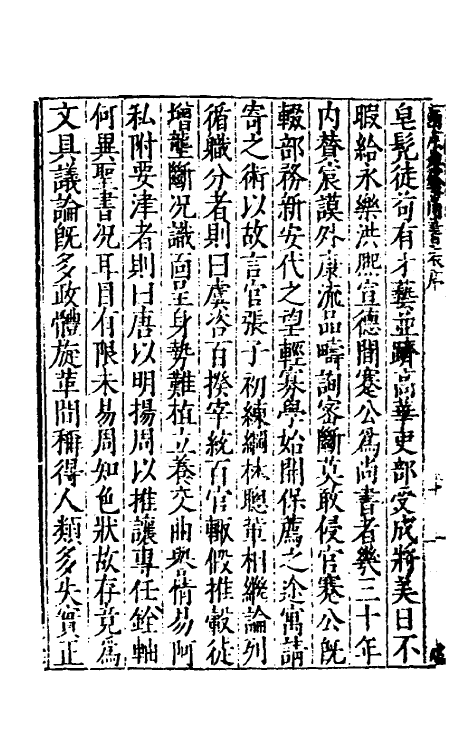 皂髡徒苟有才藝並躋高華吏部受成將美日不
暇給永樂洪熙宣德間蹇公為尚書者幾三十年
內替宸謨外康流品疇詢密斷莫敢侵官蹇公既
輟部務新安代之望輕寡學始開保薦之途寓請
寄之術以故言官張子初練綱林聰軰相繼論列
循職分者則曰虞咨百揆宰統百官輙假推轂從
增壟斷况識面呈身勢難植立養交曲與情易阿
私附要津者則曰唐以明揚周以推讓專任銓軸
何異聖書况耳目有限未易周知色狀故存竟為
文具議論既多政體旋革間稱得人類多失實正